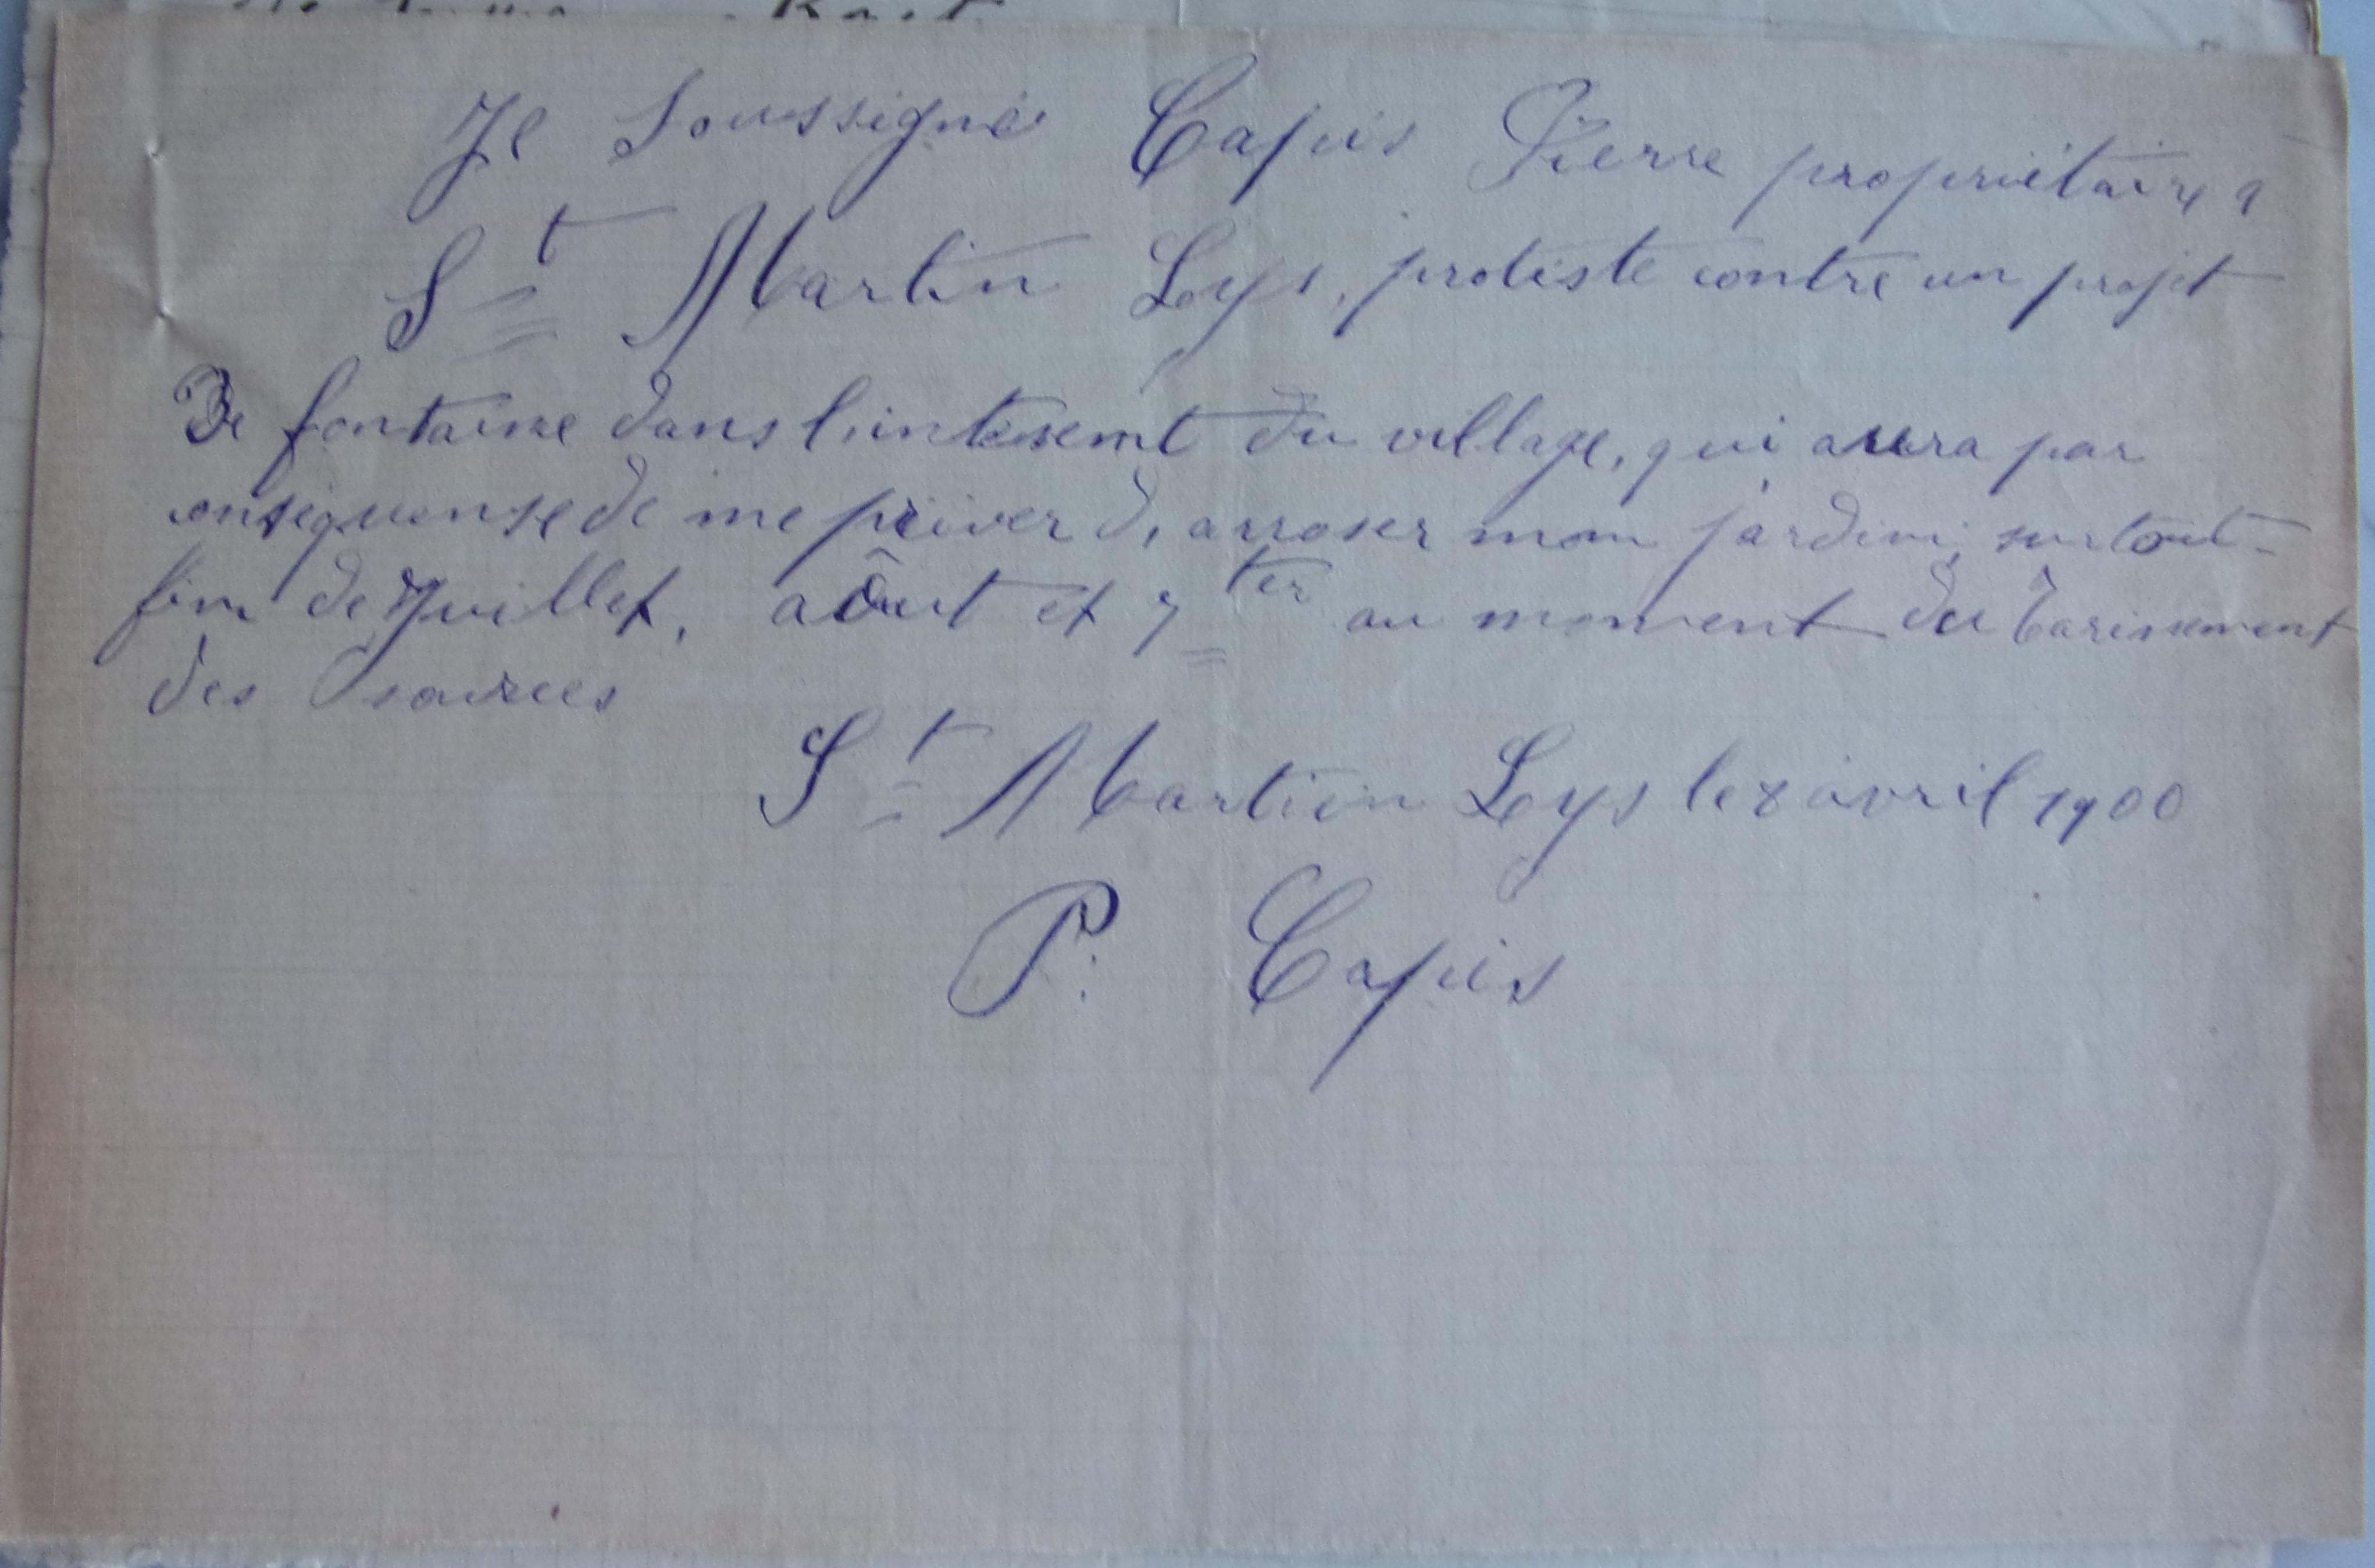 Je Soussigné Capis Pierre propriétaire a
St Martin Lys, protiste contre un projet
De fontaine dans l'interemt du village, qui aura par
consequense de me priver d, arroser mon jardin, surtout
fin de Juillet, aôut et 7ter au moment du tarissement
des sources
St Martin Lys le 8 avril 1900
P. Capis